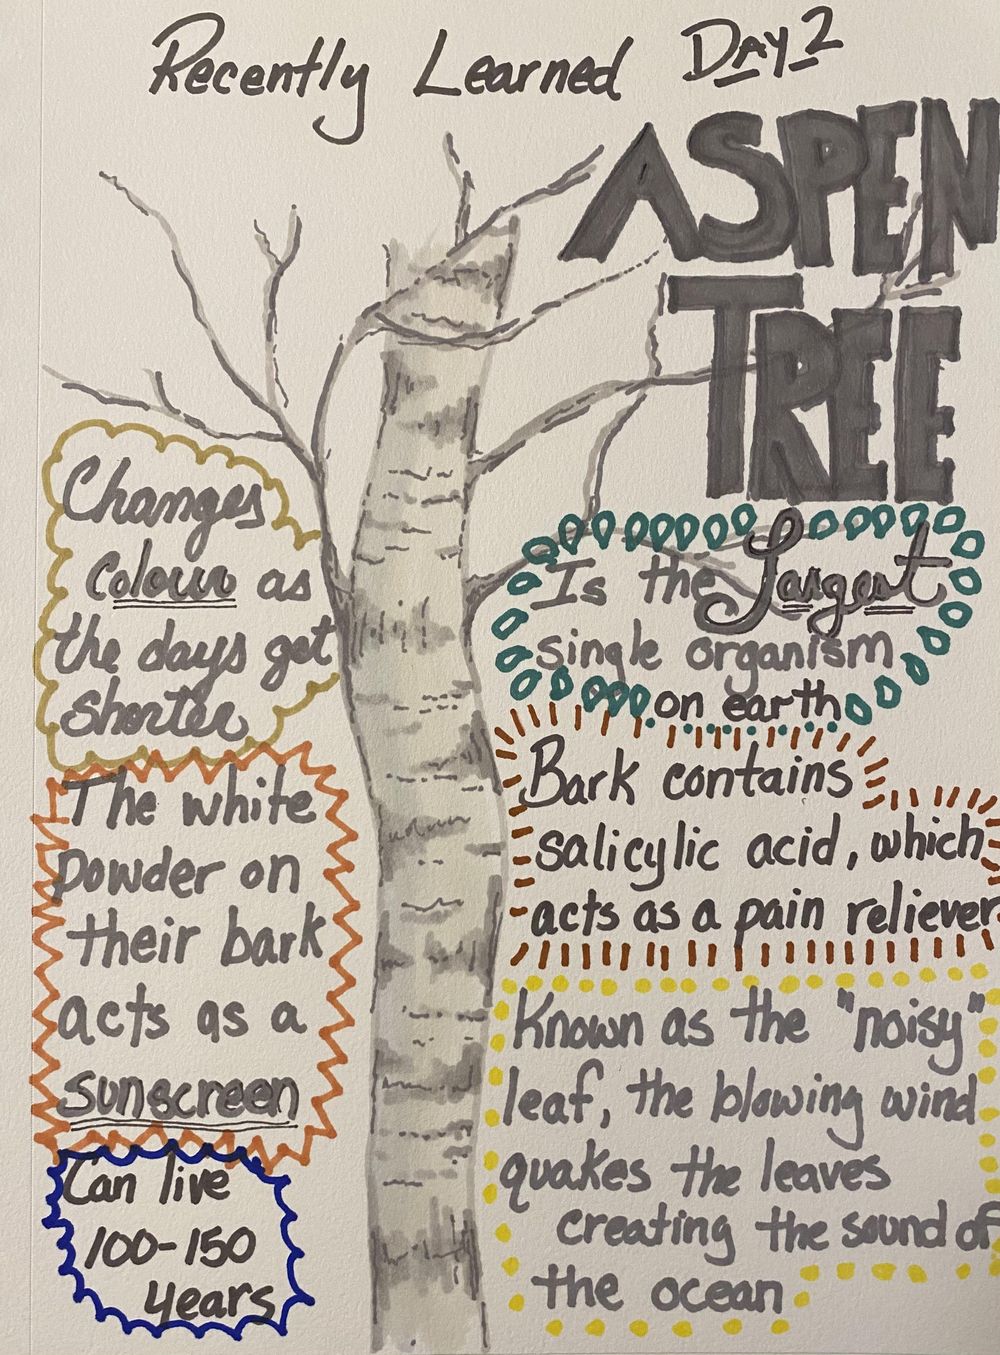 Recently Learned Day 2
ASPEN
TREE
Changes
colour as
the days get
shorter
The white
powder on
their bark
acts as a
sunscreen
Can live
100-150
years
Is the Largest
single organism
on earth
Bark contains
salicylic acid, which
acts as a pain reliever
Known as the "noisy"
leaf, the blowing wind
quakes the leaves
creating the sound of
the ocean